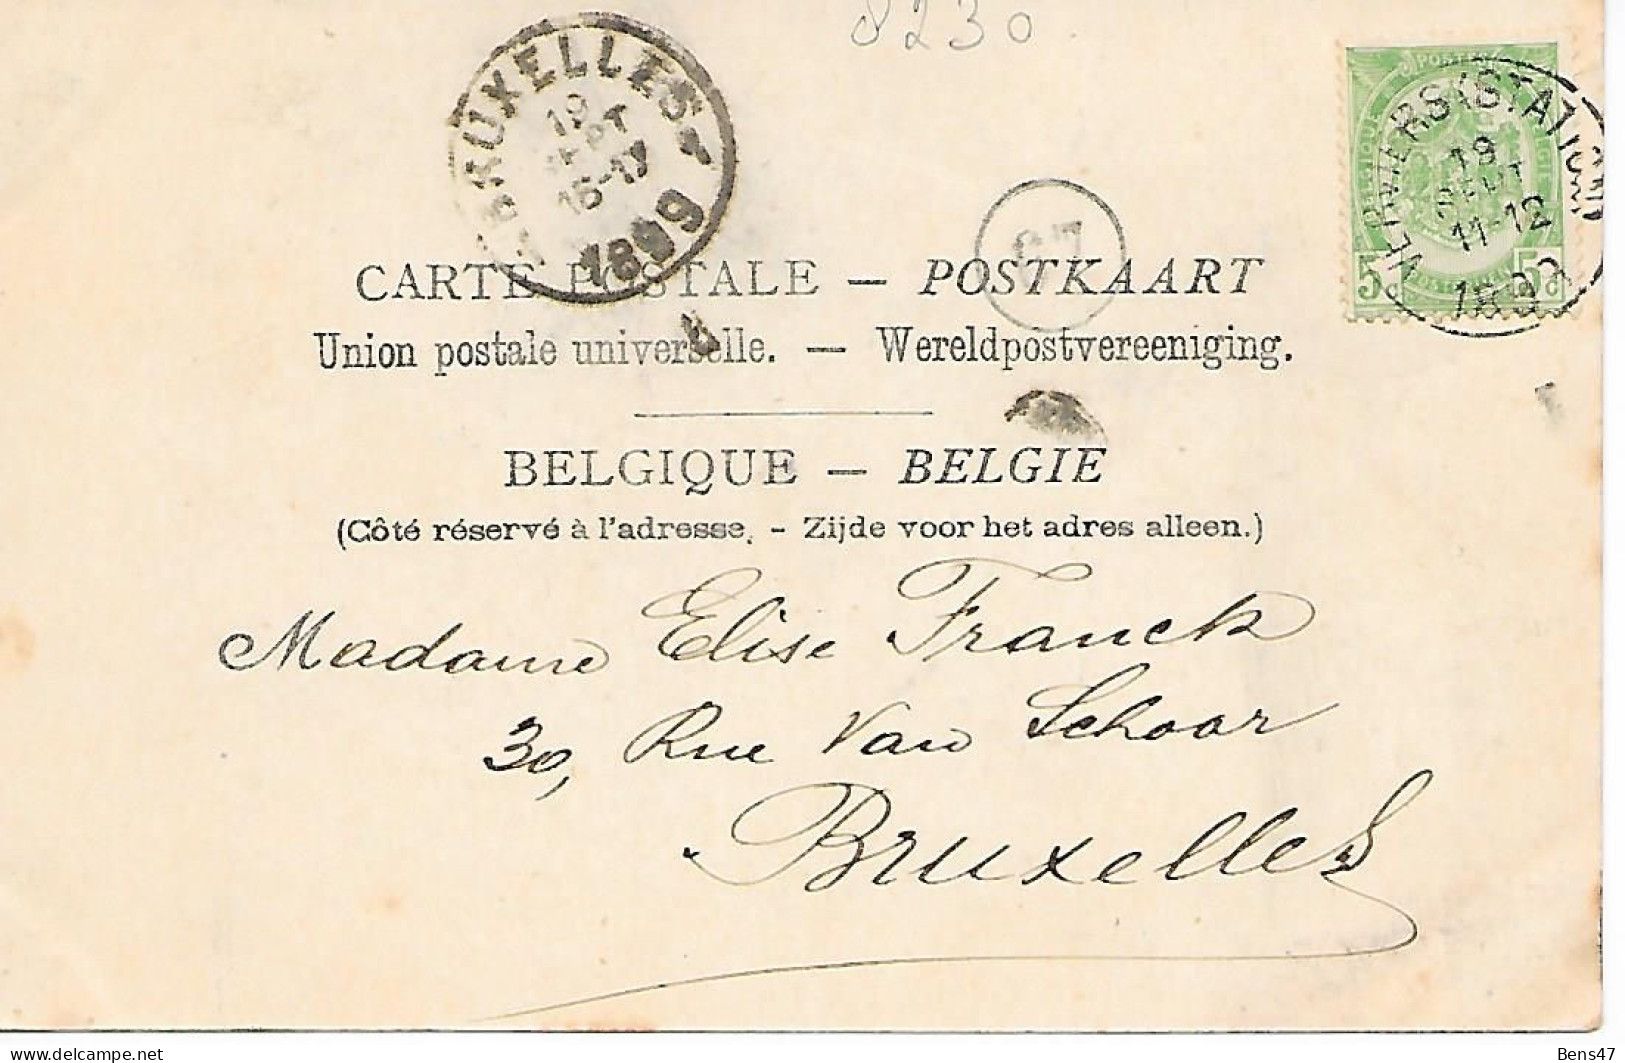 8230
BRUXELLES
19
SEPT
16-17
1899
POSTES
BELGIQUE
BELGIE
POSTERIJEN
5c
5c
VERVIERS (STATION)
19
SEPT
11-12
1899
CARTE POSTALE — POSTKAART
Union postale universelle. — Wereldpostvereeniging.
BELGIQUE — BELGIE
(Côté réservé à l'adresse. - Zijde voor het adres alleen.)
Madame Elise Franck
30, Rue Van Schoor
Bruxelles
Bens47